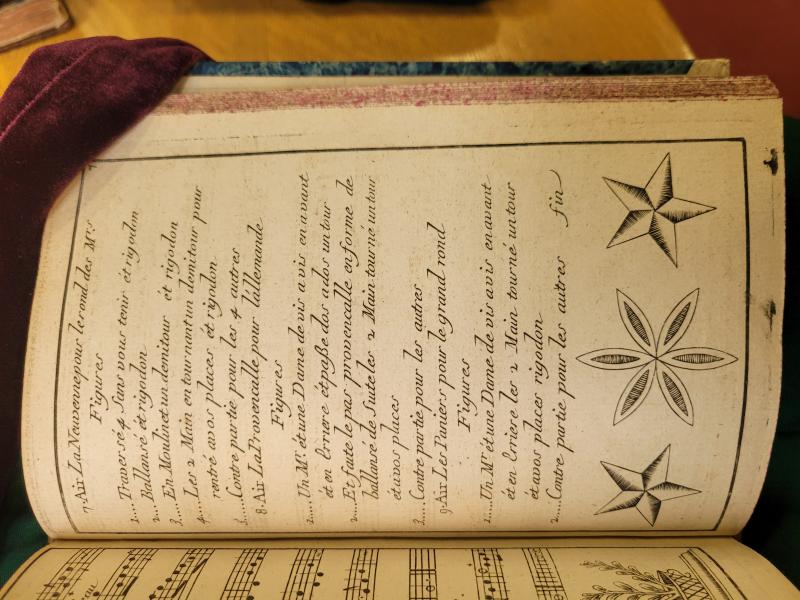 7. Air La Neuvenne pour le rond des Mrs
Figures
1.... Traversé 4 Sans vous tenir et rigodon
2.... Ballansé et rigodon
3.... En Moulinet un demitour et rigodon
4.... Les 2 Main en tournant un demitour pour
rentré avos places et rigodon
5.... Contre partie pour les 4 autres
8. Air La Provencalle pour lallemande
Figures
1.... Un Mr. ét une Dame de vis a vis en avant
ét en Erriere ét paße dos a dos un tour
2.... Et faite le pas provencalle en forme de
ballansé de Suite les 2 Main tourné un tour
ét avos places
3.... Contre partie pour les autres
9. Air Les Paniers pour le grand rond
Figures
1.... Un Mr. ét une Dame de vis avis en avant
ét en Erriere les 2 Main tourné un tour
ét avos places rigodon
2.... Contre partie pour les autres fin